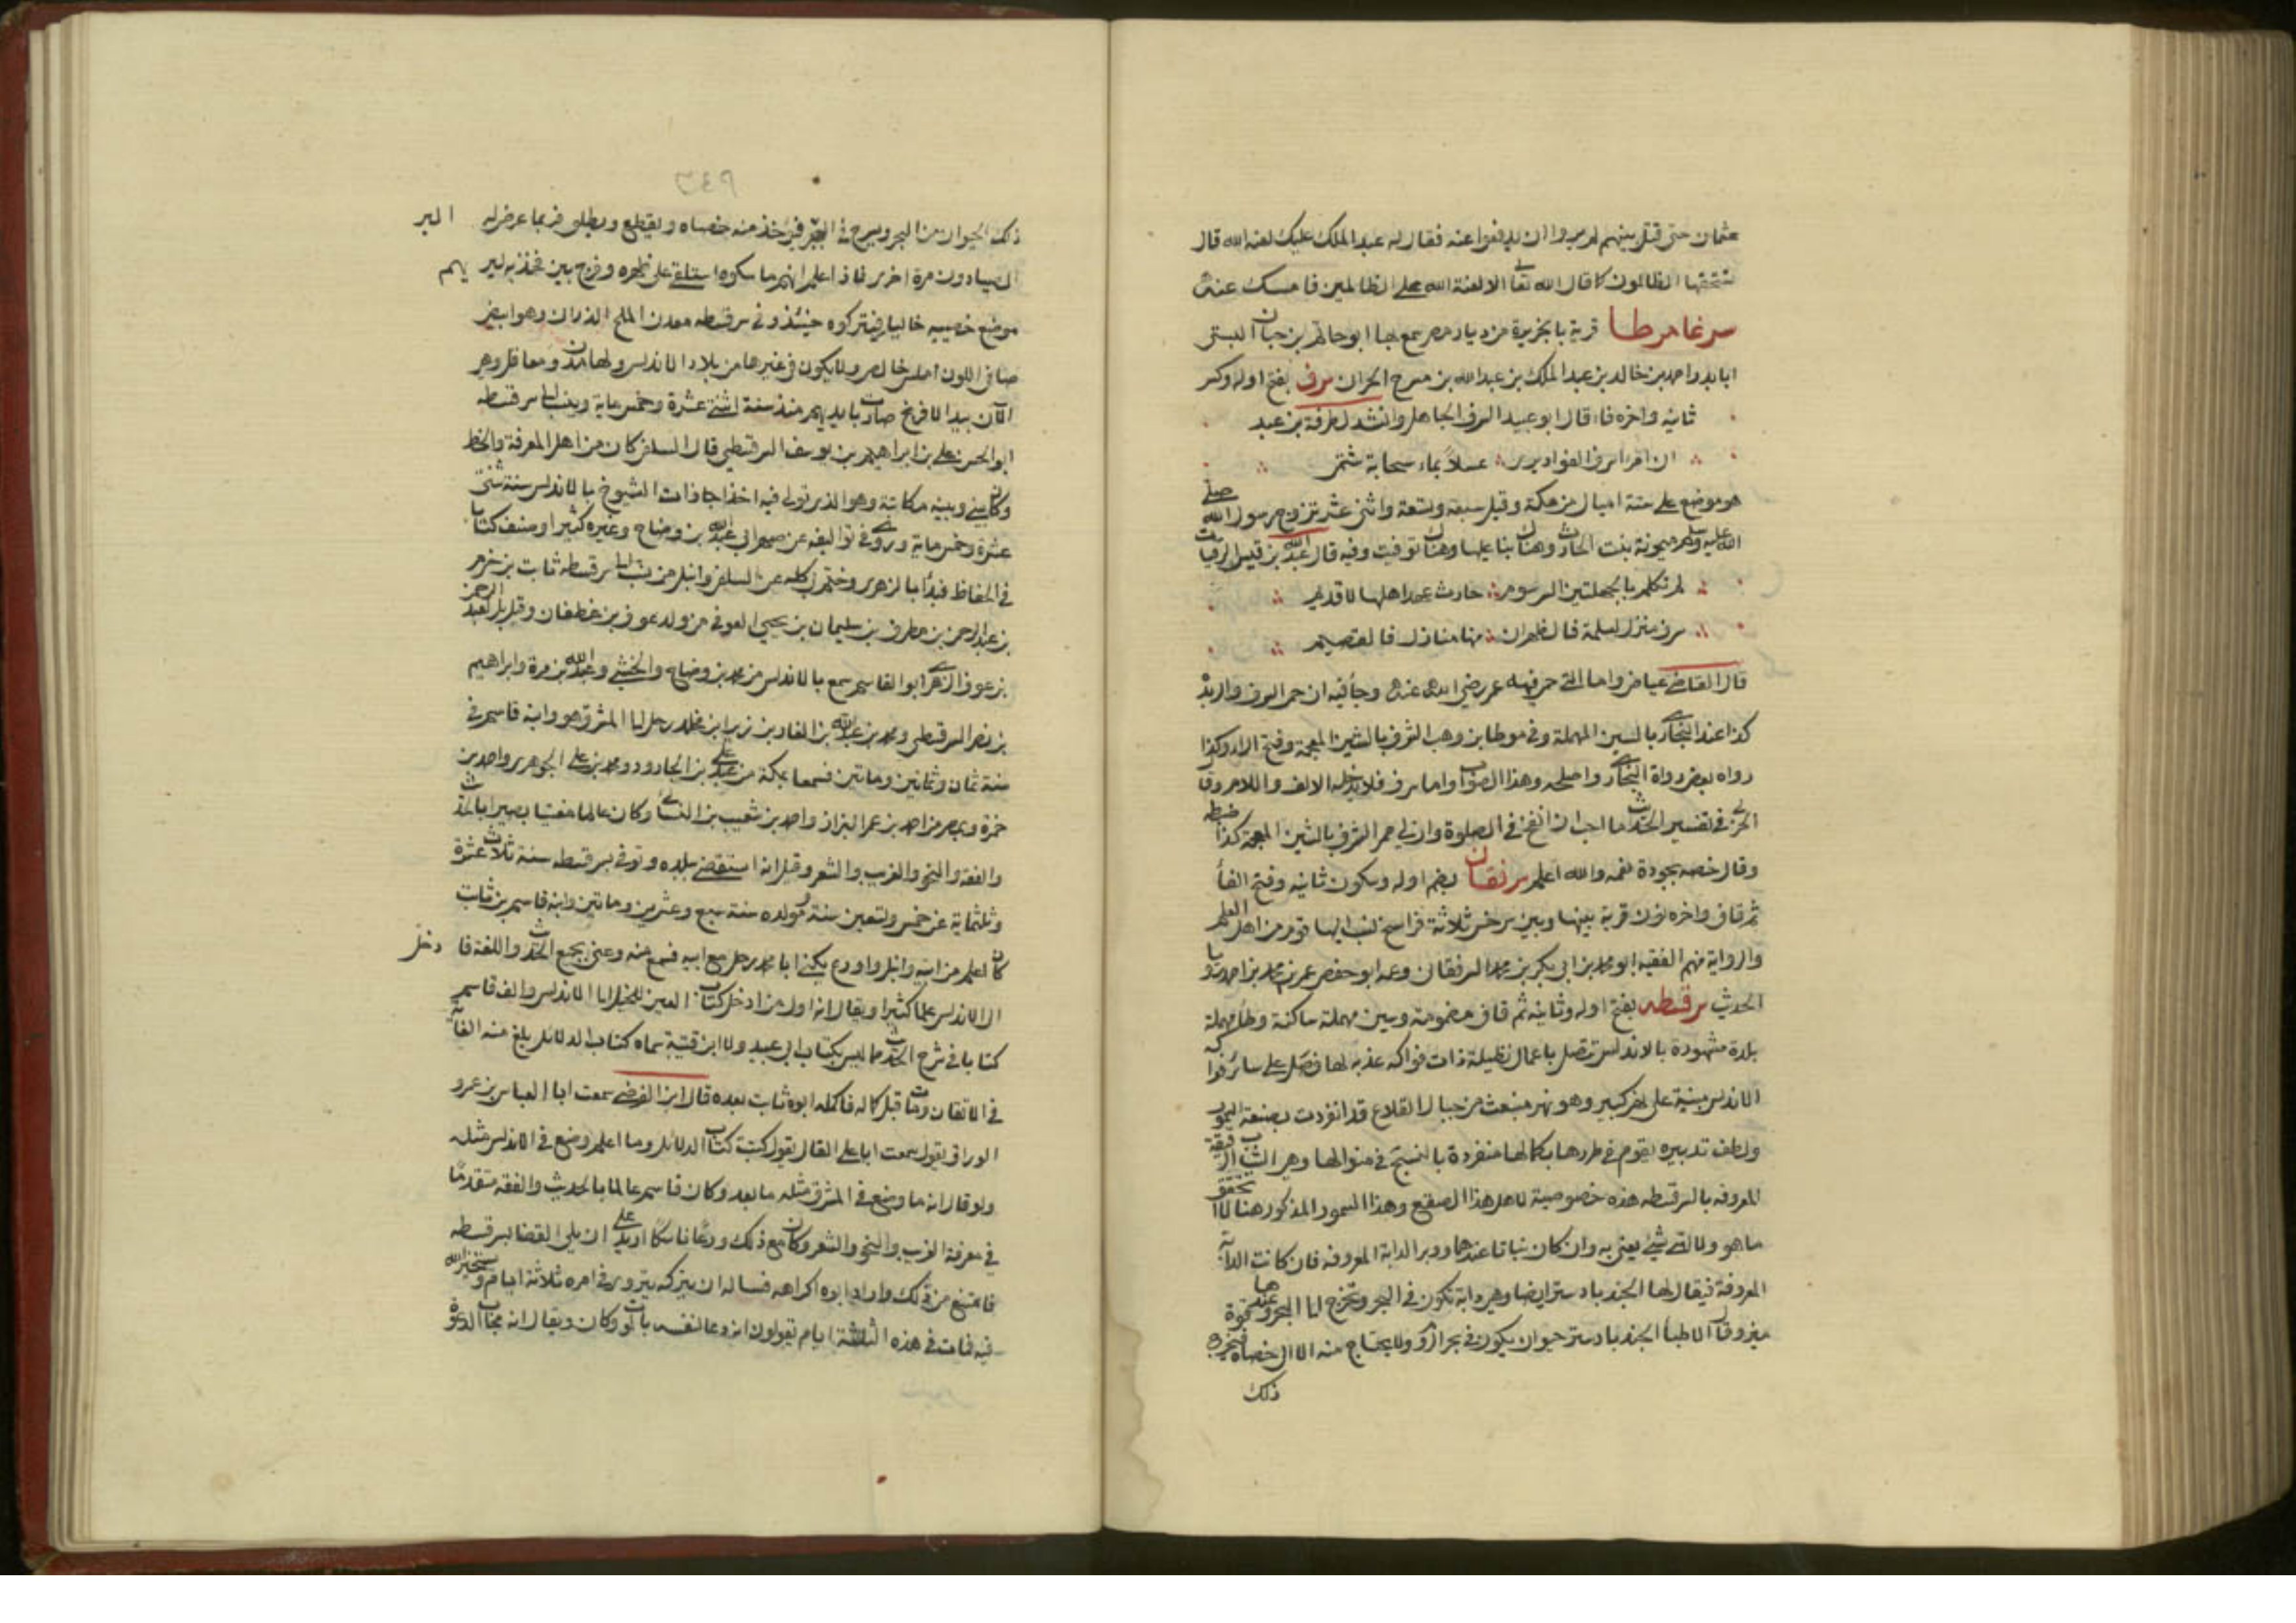 عثمان حتى قتل بينهم لم يروا ان يدفعوا عنه فقال له عبد الملك عليك لعنة الله قال
تستحقها الظالمون كما قال الله تعا الا لعنة الله على الظالمين فامسك عنه
سرغامرطا قرية بالجزيرة من ديار مضر سمع بها ابو حاتم بن حبان البستى
ابا بدر احمد بن خالد بن عبد الملك بن عبد الله بن مسرح الحرانى سرف بفتح اوله وكسر
ثانيه واخره فاء قال ابو عبيد السرف الجاهل وانشد لطرفة بن عبد
ان امرا سرف الفواد يرى عسلا بماء سحابة شتمى
هو موضع على ستة اميال من مكة وقيل سبعة وتسعة واثنى عشر تزوج رسول الله صلى
الله عليه وسلم ميمونة بنت الحارث وهناك بنا عليها وهناك توفيت وفيه قال عبد الله بن قيس الرقيات
لم تكلم بالجهلتين الرسوم حادث عهد اهلها ام قديم
سرف منزل لسلمة فالظهران منها منازل فالقصيم
قال القاضى عياض واما التى حمى فيه عمر رضى الله عنه وجأ فيه ان حمى السرف والربذة
كذا عند البخارى بالسين المهملة وفى موطا بن وهب الشرف بالشين المعجمة وفتح الراء وكذا
رواه بعض رواة البخارى واصلحه وهذا الصواب واما سرف فلا يدخله الالف واللام وقال
الحربى فى تفسير الحديث ما احب ان انفخ فى الصلوة وان لى ممر الشرف بالشين المعجمة كذا ضبطه
وقال خصه بجودة نعمه والله اعلم سرفقان بضم اوله وسكون ثانيه وفتح الفأ
ثم قاف واخره نون قرية بينها وبين سرخس ثلاثة فراسخ نسب اليها قوم من اهل العلم
والرواية منهم الفقيه ابو محمد بن ابى بكر بن محمد السرفقانى وعمه ابو حفص عمر بن محمد بن احمد رويا
الحديث سرقسطه بفتح اوله وثانيه ثم قاف مضمومة وسين مهملة ساكنة وطأ مهملة
بلدة مشهورة بالاندلس تتصل باعمال تطيلة ذات فواكه عذبه لها فضل على سائر فواكه
الاندلس مبنية على نهر كبير وهو نهر منبعث من جبال القلاع قد انفردت بصنعة السمور
ولطف تدبيره يقوم فى طرزها بكمالها منفردة بالنسج فى منوالها وهى الثياب الرقيقة
المعروفه بالسرقسطه هذه خصوصية لاهل هذا الصقع وهذا السمور المذكور هنا لا اتحقق
ما هو ولا اى شئ يعنى به وان كان نباتا عندهم او وبر الدابة المعروفه فان كانت الدابة
المعروفة فيقال لها الجندبادستر ايضا وهى دابة تكون فى البحر وتخرج الى البر وعندها قوة
ميز وقال الاطبأ الجندبادستر حيوان يكون فى بحر الروم ولا يحتاج منه الا الى خصاه فيخرج
ذلك
٣٤٩
ذلك الحيوان من البحر ويسرح فى البر فيؤخذ منه خصاه ويقطع ويطلق فربما عرض له البر
الصيادون مرة اخرى فاذا علم انهم ماسكوه استلقى على ظهره وفرج بين فخذيه ليريهم
موضع خصييه خاليا فيتركوه حينئذ وفى سرقسطه معدن الملح الذرانى وهو ابيض
صافى اللون املس خالص ولا يكون فى غيرها من بلاد الاندلس ولها مدن ومعاقل وهى
الآن بيد الافرنج صارت بايديهم منذ سنة اثنتى عشرة وخمسماية وينسب الى سرقسطه
ابو الحسن على بن ابراهيم بن يوسف السرقسطى قال السلفى كان من اهل المعرفة والخط
وكان بينى وبينه مكاتبة وهو الذى تولى فيه اخذ اجازات الشيوخ بالاندلس سنة ثنتى
عشرة وخمسماية وروى فى تواليفه عن صهر ابى عبد الله بن وضاح وغيره كثيرا وصنف كتابا
فى الحفاظ فبدأ بالزهرى وختم بى كله عن السلفى وانبل من ينسب الى سرقسطه ثابت بن حزم
بن عبد الرحمن بن مطرف بن سليمان بن يحيى العوفى من ولد عوف بن غطفان وقيل بل لعبد الرحمن
بن عوف الزهرى ابو القاسم سمع بالاندلس من محمد بن وضاح والخشنى وعبد الله بن مرة وابراهيم
بن نصر السرقسطى ومحمد بن عبد الله بن الغاز بن زيد بن مخلد رحل الى المشرق هو وابنه قاسم فى
سنة ثمان وثمانين وماتين فسمعا بمكة من عبد الله بن على بن الجارود ومحمد بن على الجوهرى واحمد بن
حمزة وبمصر من احمد بن عمر البزاز واحمد بن شعيب بن النسائى وكان عالما مفتيا بصيرا بالحديث
والفقه والنحو والغريب والشعر وقيل انه استقضى ببلده وتوفى بسرقسطه سنة ثلاث عشرة
وثلثماية عن خمس وتسعين سنة ومولده سنة سبع وعشرين وماتين وابنه قاسم بن ثابت
كان اعلم من ابيه وانبل واورع يكنى ابا محمد رحل مع ابيه فسمع منه وعنى بجمع الحديث واللغة فادخل
الى الاندلس علما كثيرا ويقال انه اول من ادخل كتاب العين للخليل الى الاندلس والف قاسم
كتابا فى شرح الحديث مما ليس بكتاب ابى عبيد ولا ابن قتيبة سماه كتاب الدلائل بلغ منه الغاية
فى الاتقان ومات قبل كماله فاكمله ابوه ثابت بعده قال ابن الفرضى سمعت ابا العباس بن عمرو
الوراق يقول سمعت ابا على القالى يقول كتبت كتاب الدلائل وما اعلم وضع فى الاندلس مثله
ولو قال انه ما وضع فى المشرق مثله ما بعد وكان قاسم عالما بالحديث والفقه متقدما
فى معرفة الغريب والنحو والشعر وكان مع ذلك ورعا ناسكا اريد على ان يلى القضا بسرقسطه
فامتنع من ذلك واراد ابوه اكراهه فساله ان يتركه يتروى فى امره ثلاثة ايام ويستخير الله
فيه فمات فى هذه الثلثة ايام يقولون انه دعا لنفسه بالموت وكان ويقال انه مجاب الدعوة